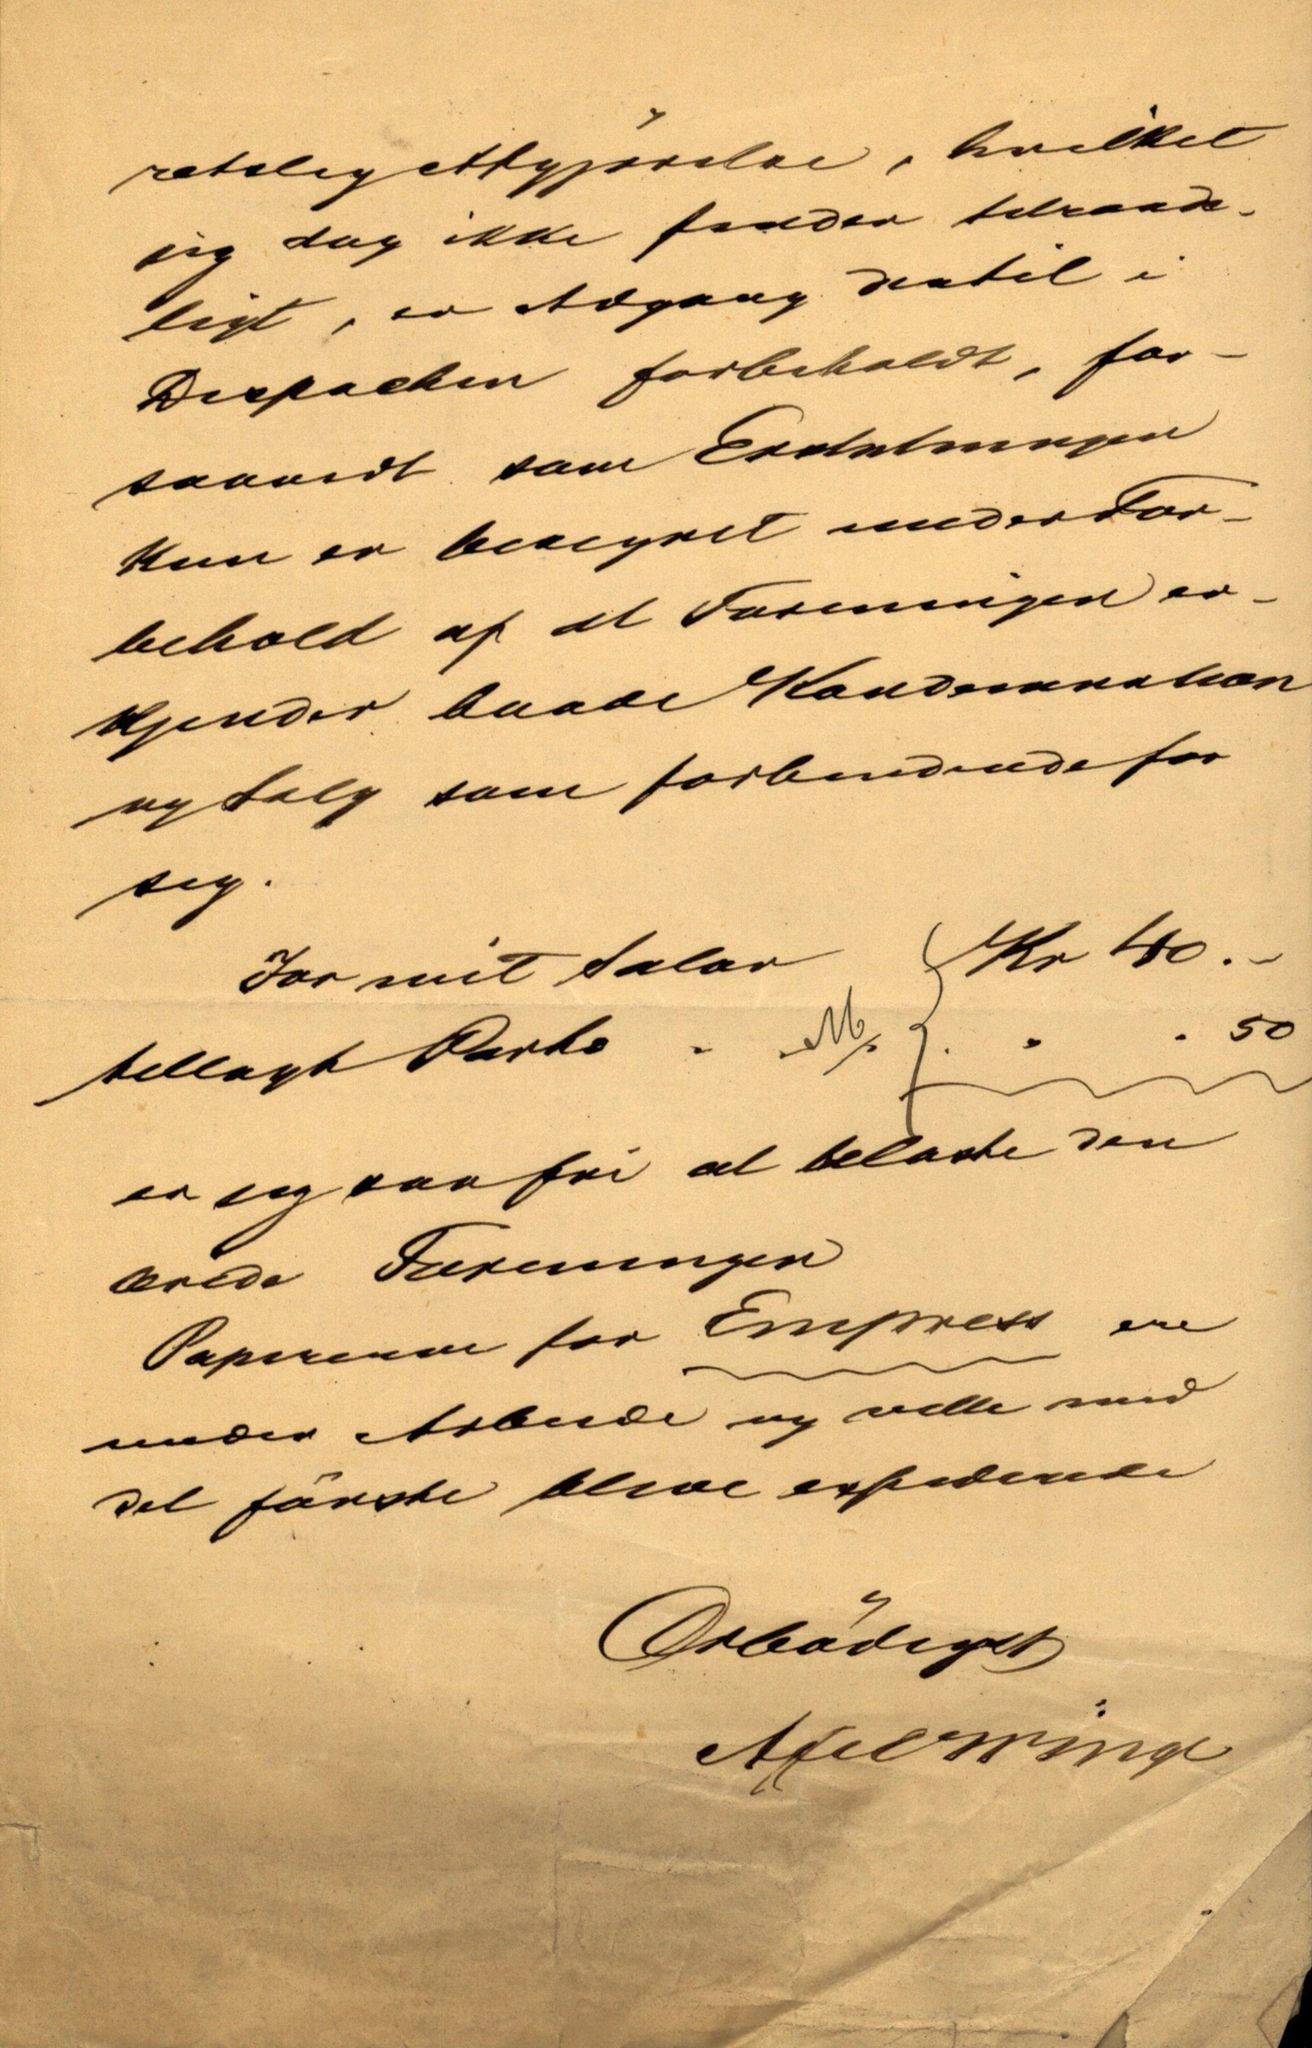 retslig Afgjörelse, hvilket
jeg dog ikke finder tilraade-
ligt, er Adgang dertil i
Despachen forbeholdt, for-
saavidt som Erstatningen
kun er beregnet under For-
behold af at Foreningen er-
kjender baade Kondemnation
og Salg som forbindende for
sig.
For mit Salar Kr 40.-
tillagt Porto " " . 50
er jeg saa fri at belaste den
ærede Foreningen
Papirerne for Empress ere
under Arbeide og ville med
det förste blive expederede
Ærbödigst
Axel Winge